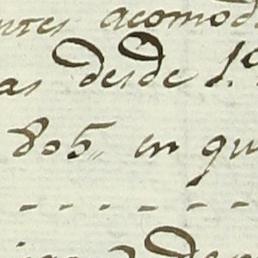 ntes acomod
as desde 1.º
805, en qu
- - - - - - -